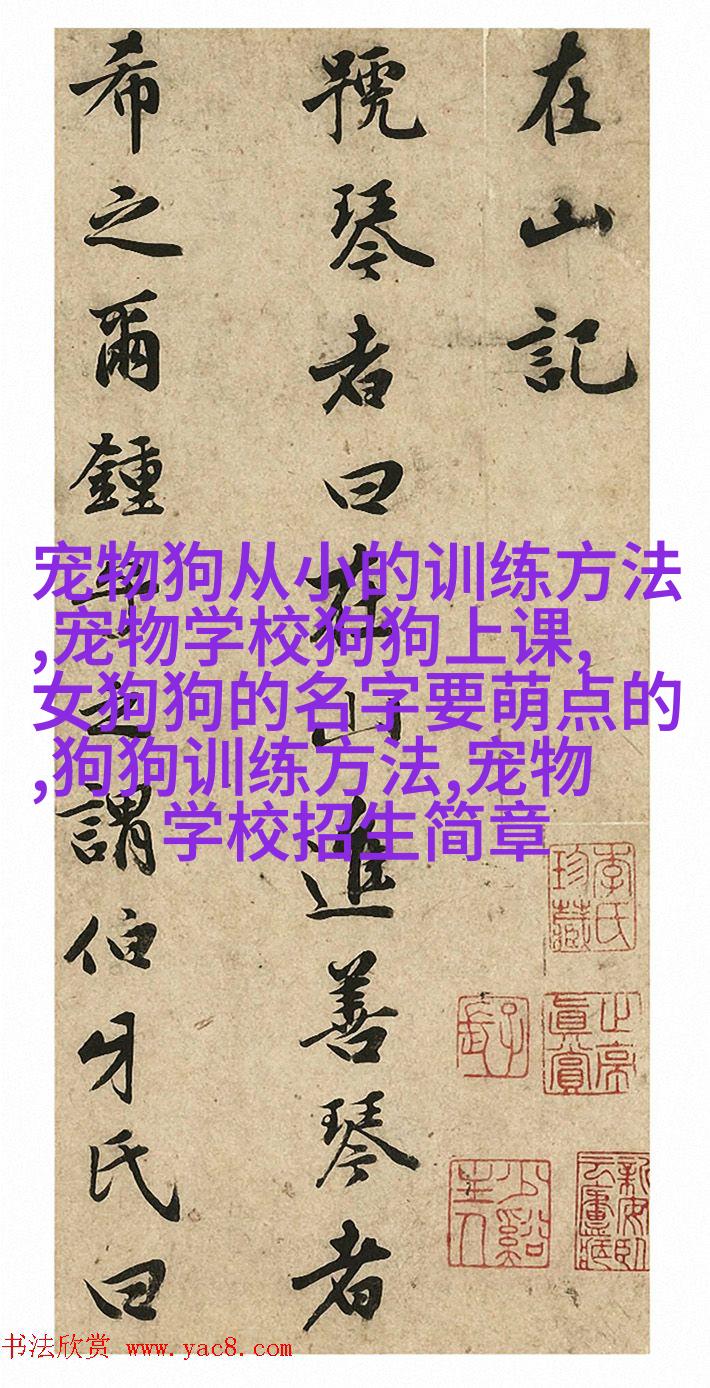 在山記
號琴者曰在山進善琴者
希之爾鍾之謂伯牙氏曰
宠物狗从小的训练方法
,宠物学校狗狗上课,
女狗狗的名字要萌点的
,狗狗训练方法,宠物
学校招生简章
李氏珍藏
真賞
少谿主人
书法欣赏 www.yac8.com